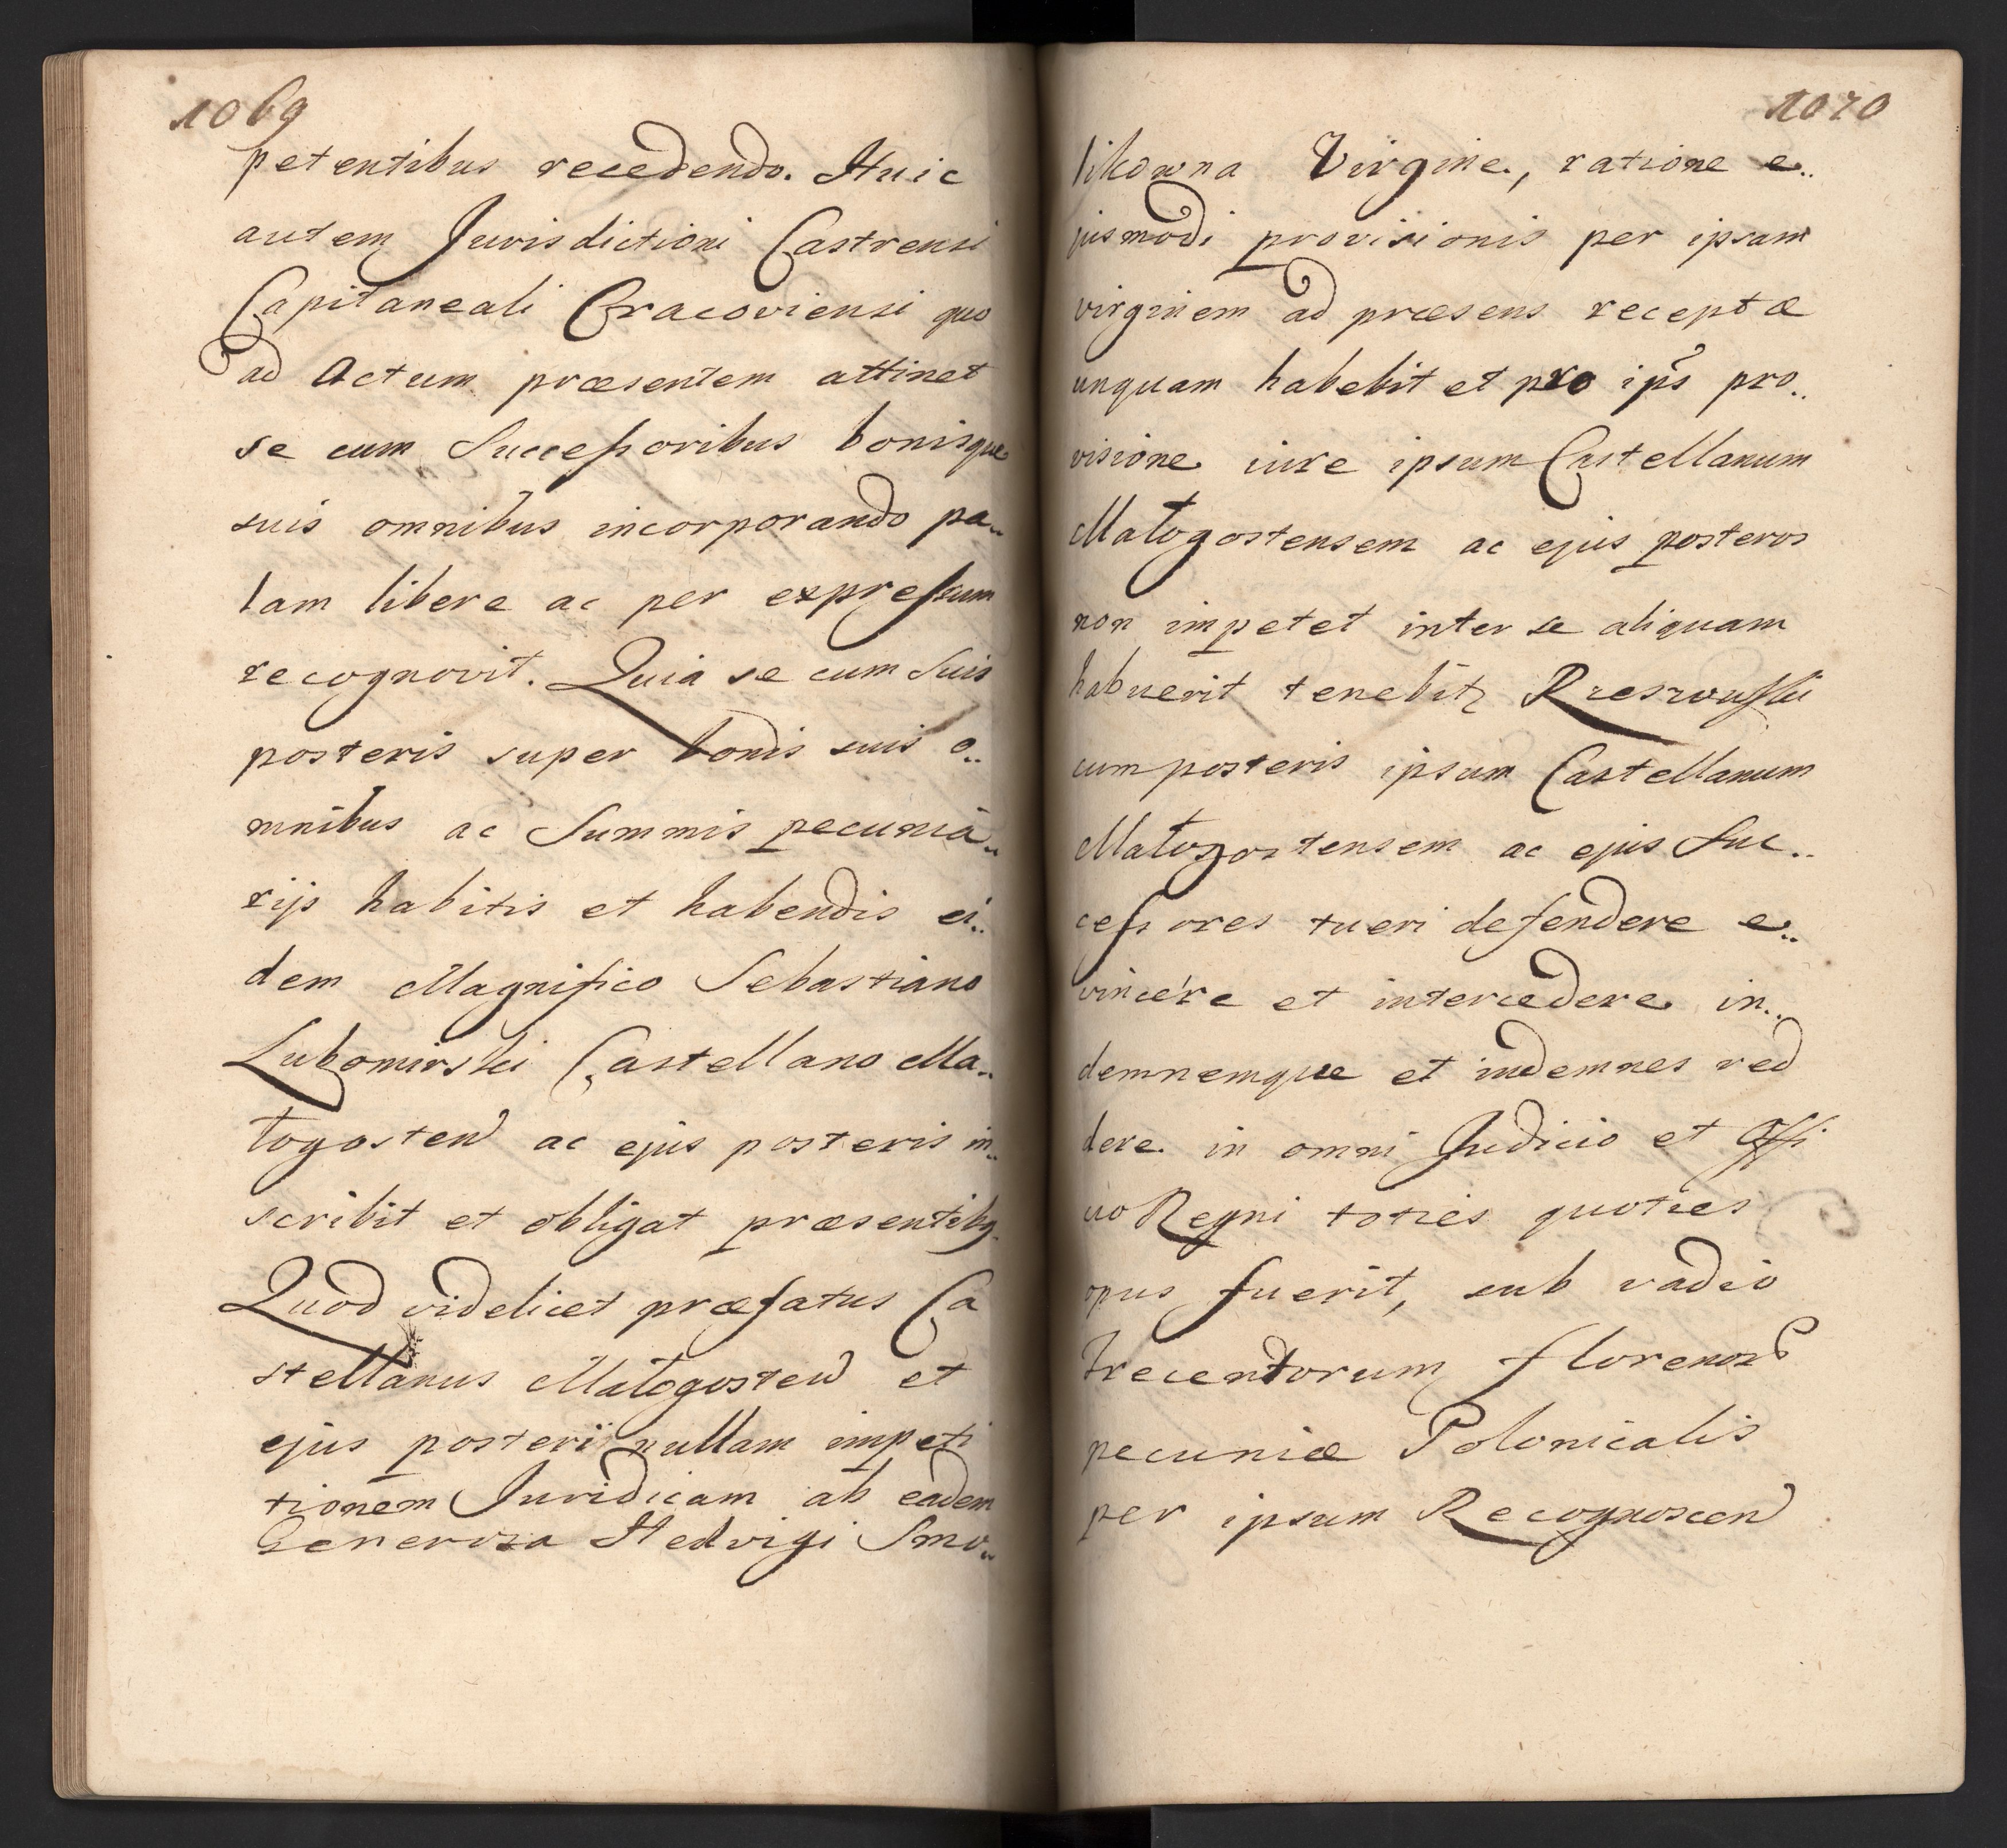 1069
petentibus recedendo. Huic
autem Jurisdictioni Castrensi
Capitaneali Cracoviensi quo
ad Actum præsentem attinet
se cum Successoribus bonisque
suis omnibus incorporando pa..
lam libere ac per expressum
recognovit. Quia se cum suis
posteris super bonis suis o..
mnibus ac Summis pecunia..
rijs habitis et habendis ei..
dem Magnifico Sebastiano
Lubomirski Castellano Ma..
łogosten ac ejus posteris in..
scribit et obligat præsentibq.
Quod videlicet præfatus Ca
stellanus Małogosten et
ejus posteri nullam impeti
tionem Juridicam ab eadem
Generosa Hedvigi Smo..
1070
likowna Virgine, ratione e..
jusmodi provisionis per ipsam
virginem ad præsens receptæ
unquam habebit et pro ips pro..
visione iure ipsum Castellanum
Małogostensem ac ejus posteros
non impetet inter se aliquam
habuerit tenebit
cum posteris ipsum Castellanum
Małogostensem ac ejus Suc..
cessores tueri defendere e..
vincere et intercedere in..
demnemque et indemnes red
dere in omni Judicio et Offi
cio Regni toties quoties
opus fuerit, sub vadio
trecentorum florenor
pecuniæ Polonicalis
per ipsum Recognoscen